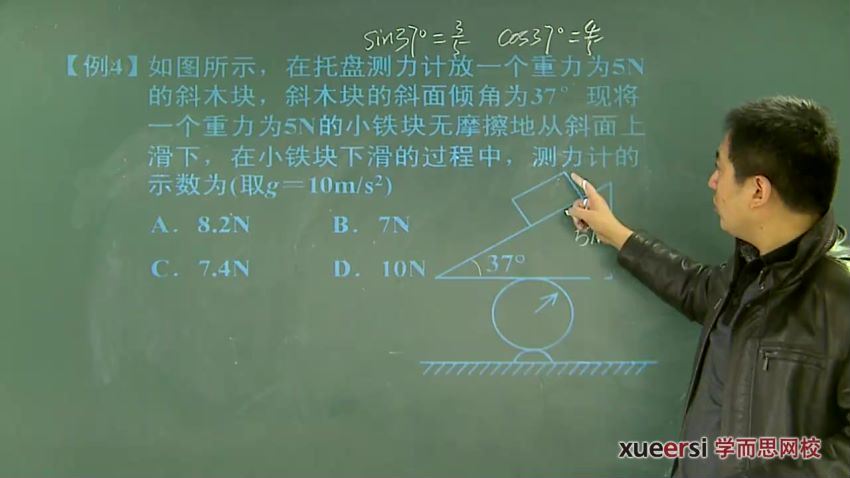 sin37°=3/5 cos37°=4/5
【例4】如图所示，在托盘测力计放一个重力为5N
的斜木块，斜木块的斜面倾角为37° 现将
一个重力为5N的小铁块无摩擦地从斜面上
滑下，在小铁块下滑的过程中，测力计的
示数为(取g＝10m/s²)
A．8.2N B．7N
C．7.4N D．10N
37°
xueersi 学而思网校